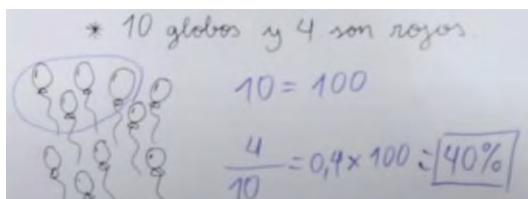 * 10 globos y 4 son rojos.
10 = 100
4/10 = 0,4 x 100 = 40%